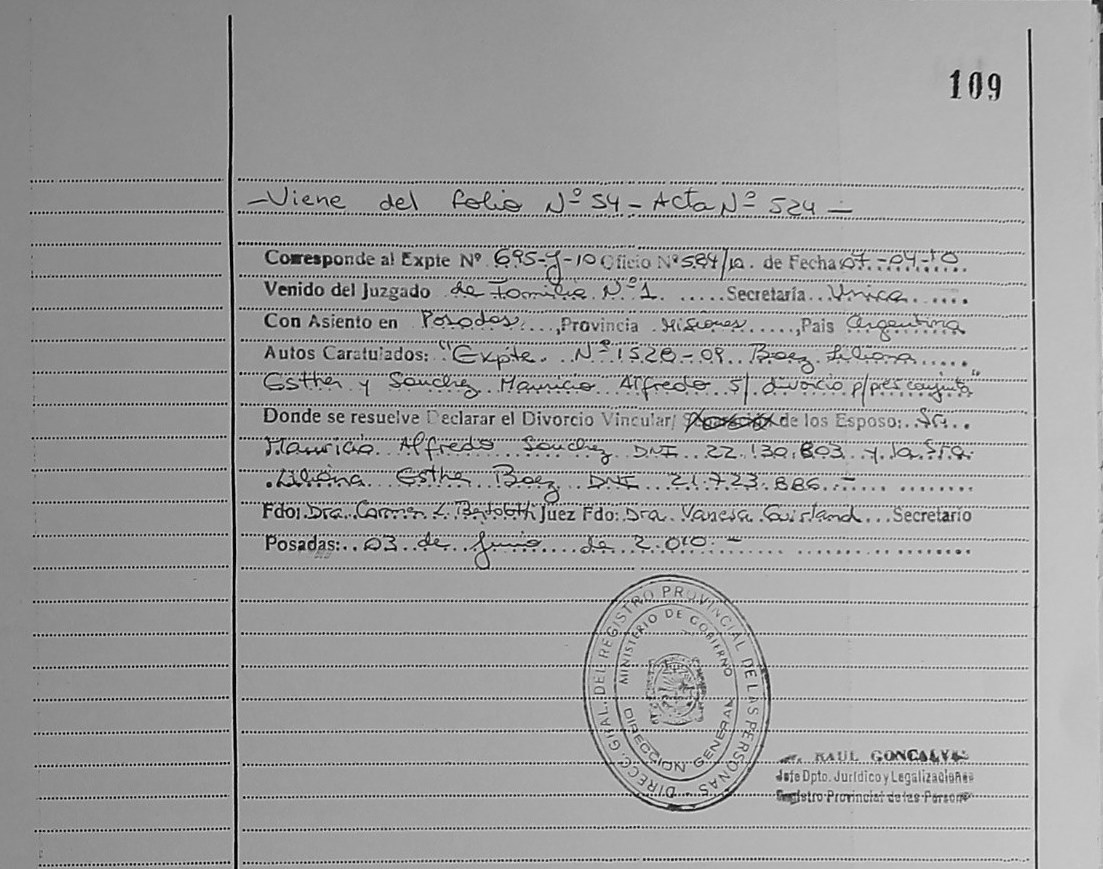 109
- Viene del folio Nº 54 - Acta Nº 524 -
Corresponde al Expte Nº 695-J-10 Oficio Nº 584/10. de Fecha 07-04-10
Venido del Juzgado de Familia Nº 1. Secretaría Unica
Con Asiento en Posadas, Provincia Misiones, Pais Argentina
Autos Caratulados: "Expte. Nº 1528-09. Baez Liliana
Esther y Sanchez Mauricio Alfredo S/ divorcio p/pres conjunta"
Donde se resuelve Declarar el Divorcio Vincular/ de los Esposo: Sr.
Mauricio Alfredo Sanchez DNI 22.130.803 y la Sra.
Liliana Esther Baez DNI 21.723.886.-
Fdo: Dra. Carmen L. Juez Fdo: Dra. Vanesa Secretario
Posadas: 03 de Junio de 2.010.-
DIRECC. GRAL. DEL REGISTRO PROVINCIAL DE LAS PERSONAS
MINISTERIO DE GOBIERNO
DIRECCION GENERAL
RAUL GONCALVES
Jefe Dpto. Jurídico y Legalizaciones
Registro Provincial de las Persona